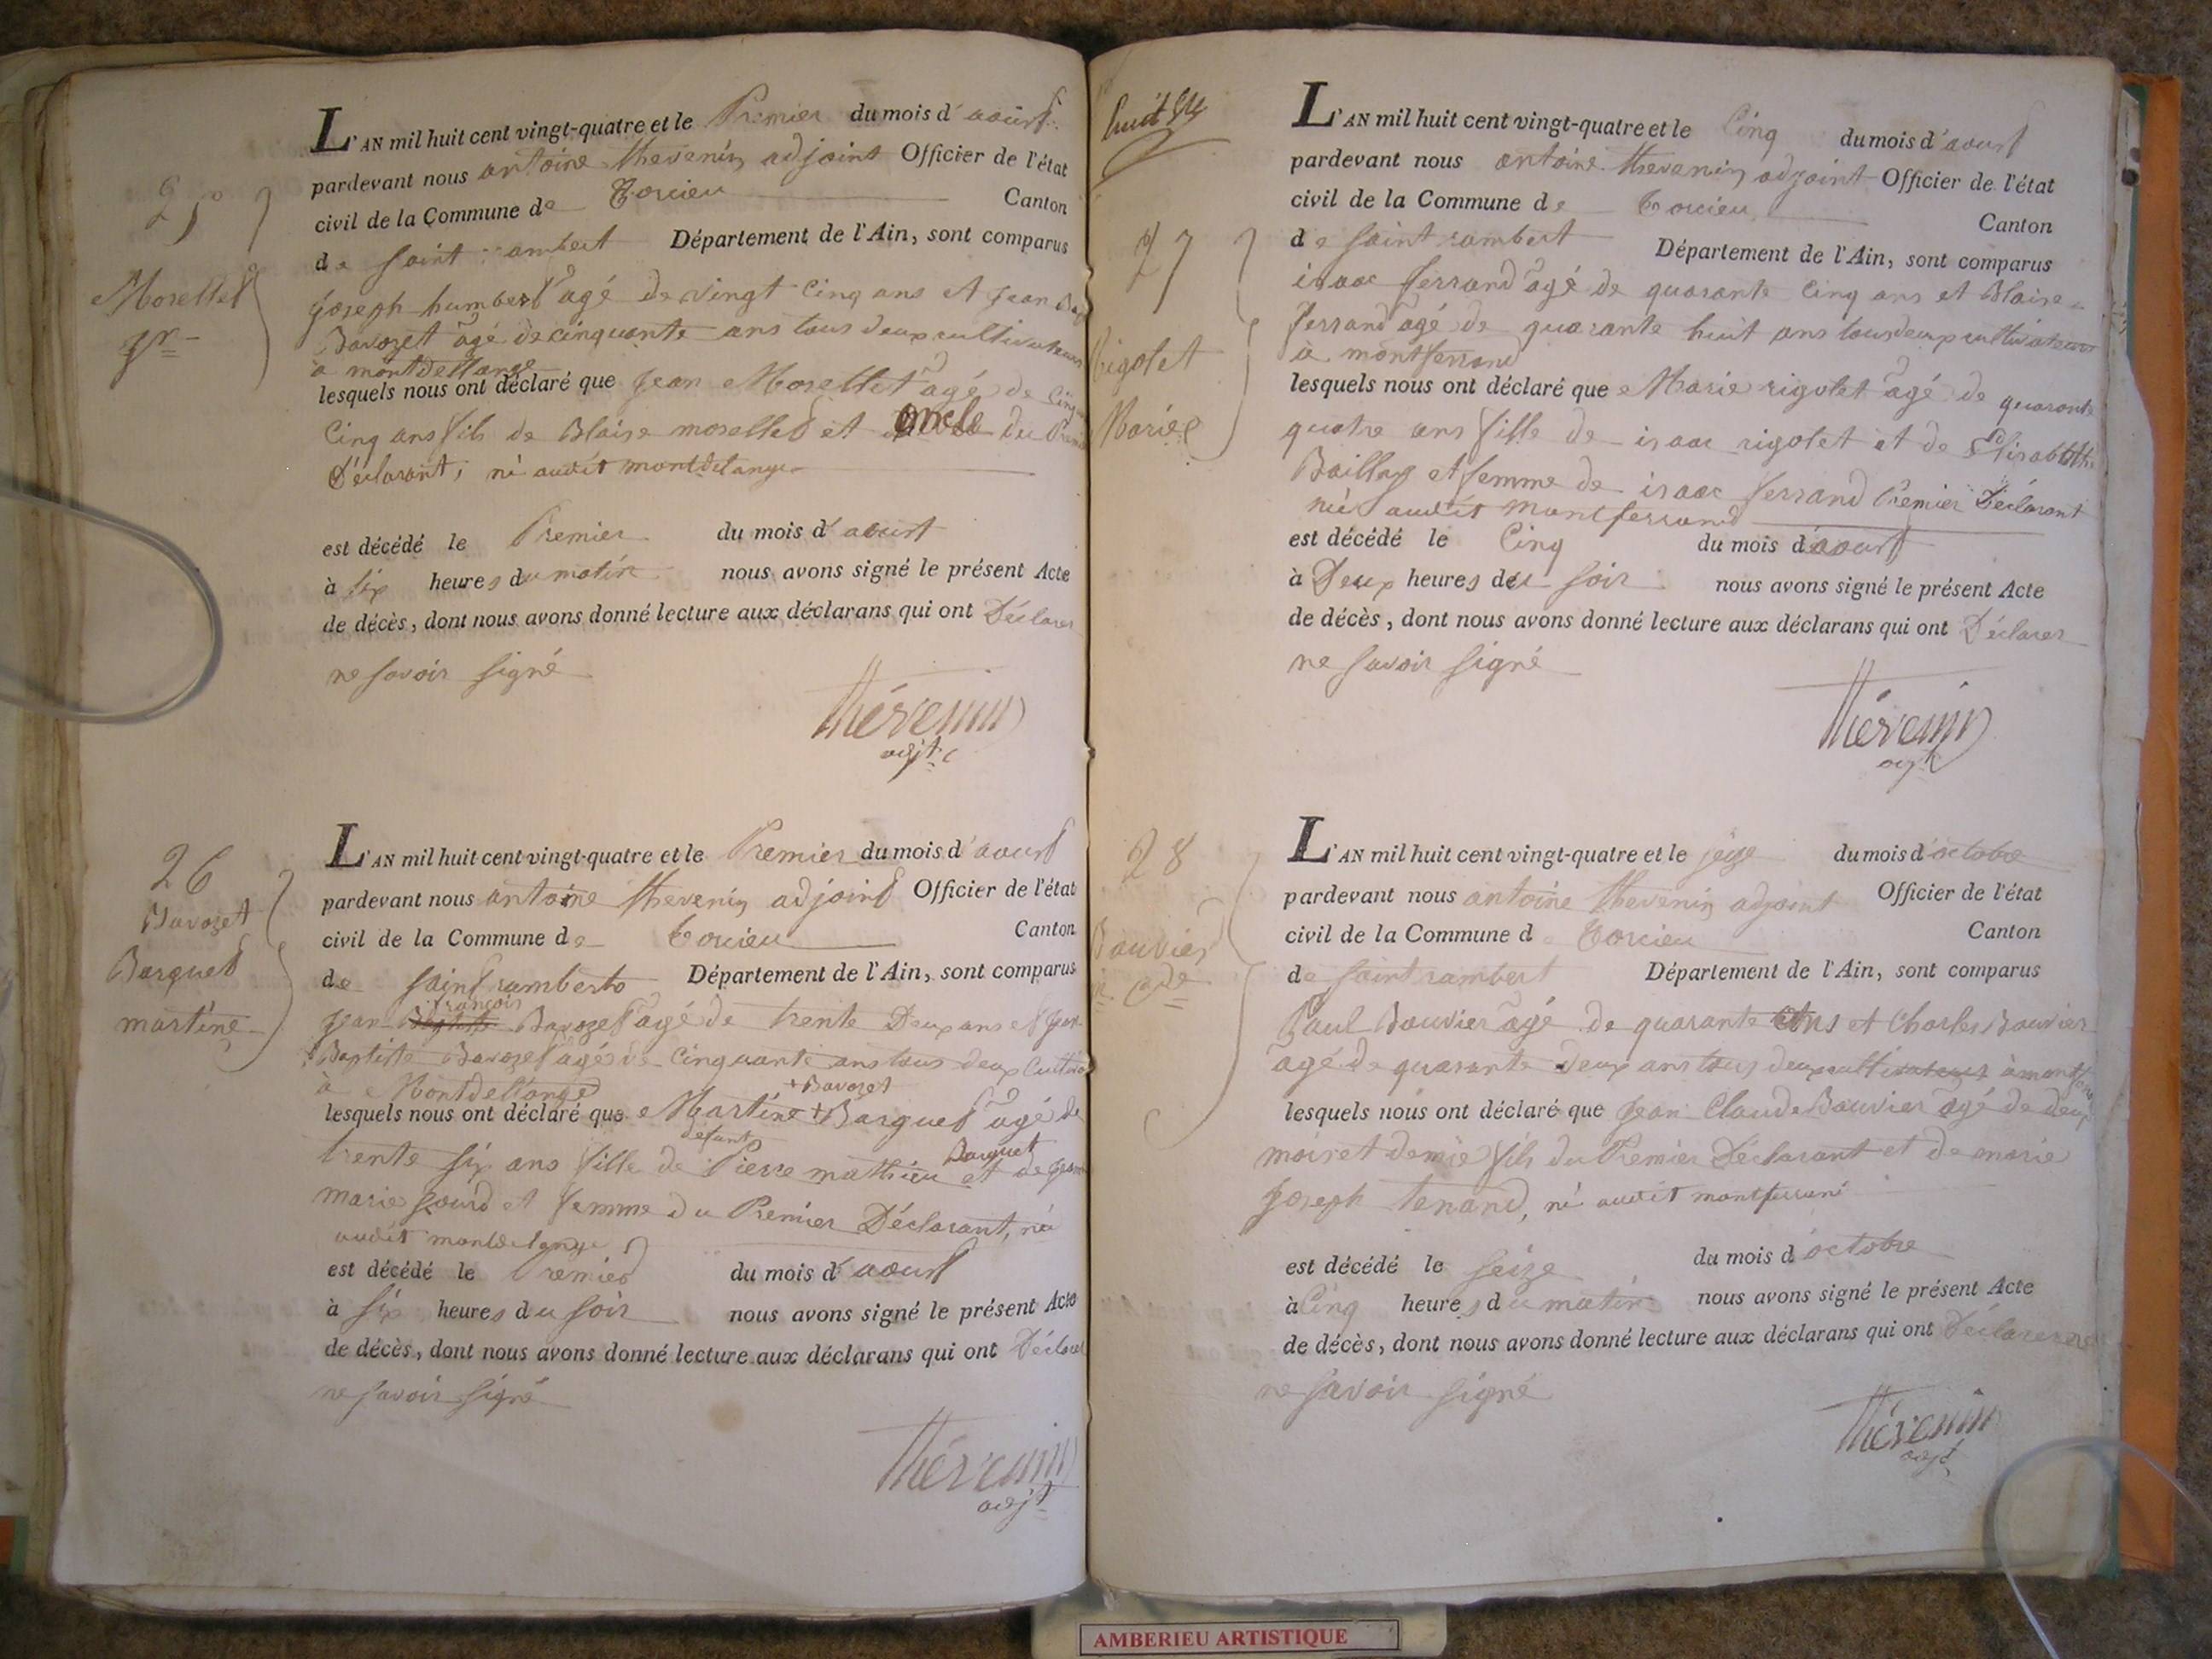 25
Morellet
jn
L'AN mil huit cent vingt-quatre et le Premier du mois d'aoust
pardevant nous antoine thevenin adjoint Officier de l'état
civil de la Commune de Torcieu Canton
de saint rambert Département de l'Ain, sont comparus
joseph humbert agé de vingt cinq ans et jean Bap
Bavozet agé de cinquante ans tous deux cultivateurs
à montdellange
lesquels nous ont déclaré que jean Morellet agé de
cinq ans fils de Blaise morellet et oncle du Premier
Déclarant, né audit montdelange
est décédé le Premier du mois d'aoust
à six heures du matin nous avons signé le présent Acte
de décès, dont nous avons donné lecture aux déclarans qui ont Déclarer
ne savoir signé
thévenin
adjt
26
Bavozet
Barquet
martine
L'AN mil huit cent vingt-quatre et le Premier du mois d'aoust
pardevant nous antoine thevenin adjoint Officier de l'état
civil de la Commune de Torcieu Canton
de saint ramberto Département de l'Ain, sont comparus
françois
jean Baptiste Bavozet agé de trente Deux ans et jean
Baptiste Bavozet agé de cinquante ans tous deux cultiva
à Montdellange
+ Bavozet
lesquels nous ont déclaré que Martine + Barquet agé de
défunt Barquet
trente six ans fille de Pierre mathieu et de jeanne
marie gourd et femme du Premier Déclarant, née
audit montdelange
est décédé le Premier du mois d'aoust
à six heures du soir nous avons signé le présent Acte
de décès, dont nous avons donné lecture aux déclarans qui ont Déclarer
ne savoir signé
thévenin
adjt
huit
27
Rigotet
Marie
L'AN mil huit cent vingt-quatre et le Cinq du mois d'aoust
pardevant nous antoine thevenin adjoint Officier de l'état
civil de la Commune de Torcieu Canton
de saint rambert Département de l'Ain, sont comparus
isaac ferrand agé de quarante cinq ans et Blaise
ferrand agé de quarante huit ans tous deux cultivateurs
à montferrand
lesquels nous ont déclaré que Marie rigotet agé de quarante
quatre ans fille de isaac rigotet et de Elisabeth
Baillay et femme de isaac ferrand Premier Déclarant
née audit montferrand
est décédé le Cinq du mois d'aoust
à Deux heures du soir nous avons signé le présent Acte
de décès, dont nous avons donné lecture aux déclarans qui ont Déclarer
ne savoir signé
thévenin
adjt
28
Bouvier
jn cde
L'AN mil huit cent vingt-quatre et le seize du mois d'octobre
pardevant nous antoine thevenin adjoint Officier de l'état
civil de la Commune d Torcieu Canton
de saint rambert Département de l'Ain, sont comparus
Paul Bouvier agé de quarante ans et Charles Bouvier
agé de quarante deux ans tous deux cultivateurs à montferrand
lesquels nous ont déclaré que jean Claude Bouvier agé de deux
mois et demie fils du Premier Déclarant et de marie
joseph tenand, né audit montferrand
est décédé le seize du mois d'octobre
à Cinq heures du matin nous avons signé le présent Acte
de décès, dont nous avons donné lecture aux déclarans qui ont Déclarer
ne savoir signé
thévenin
adjt
AMBERIEU ARTISTIQUE